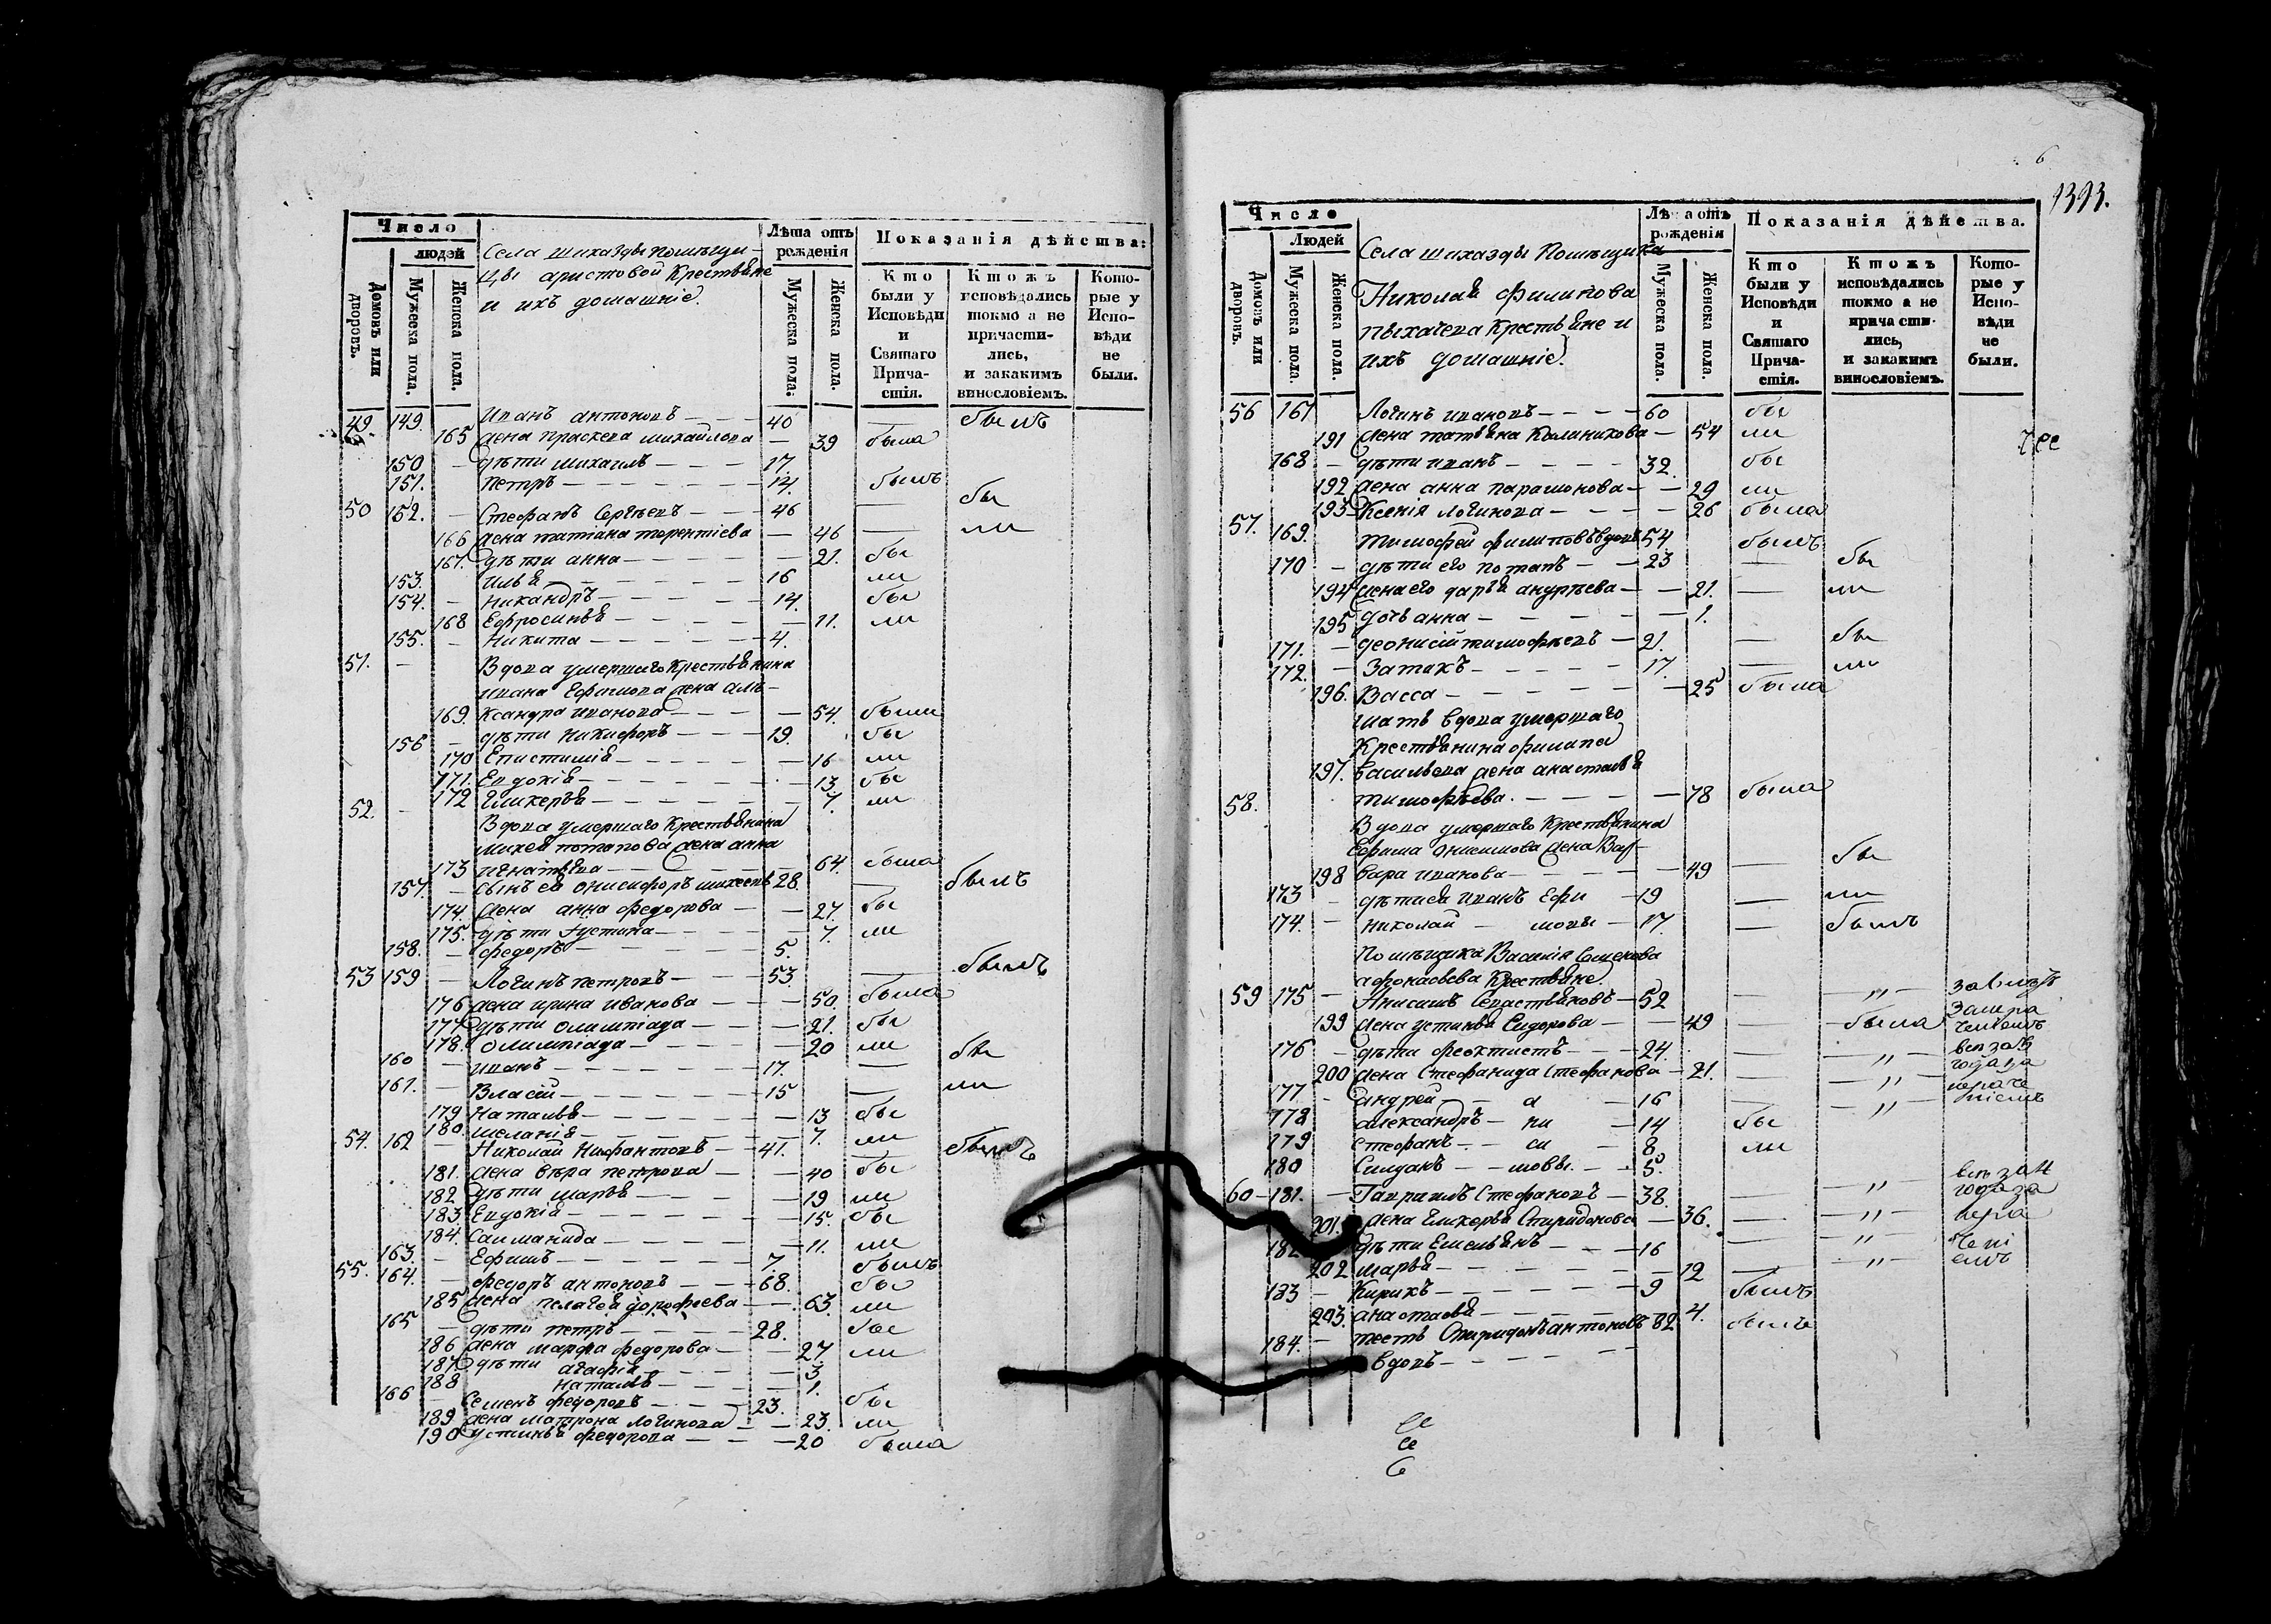 Число
людей
Домовъ или дворовъ.
Мужеска пола.
Женска пола.
Села Шихазды помѣщи-
цы аристовой Крестьяне
и ихъ домашніе.
Лѣта отъ рожденія
Мужеска пола.
Женска пола.
Показанія дѣйства:
Кто были у Исповѣди и Святаго Прича-стія.
Ктожъ исповѣдались токмо а не причасти-лись, и закакимъ винословіемъ.
Кото-рые у Испо-вѣди не были.
49. 149. Иванъ антоновъ — — 40 — былъ
165 жена праскева михайлова — 39 была
150 — дѣти михаилъ — — — 17.
151. петръ — — — 14. былъ
50 152. — Стефанъ Сергѣевъ — — 46 — бы
166 жена татіана терентіева — 46 — ли
167. дѣти анна — — — 21. бы
153. илья — — — 16 ли
154. — никандръ — — — 14. бы
168 Ефросинья — — — 11. ли
155. — никита — — — 4.
51. — Вдова умершаго Крестьянина
ивана Ефимова жена але-
169. ксандра иванова — — — 54. были
156 — дѣти никифоръ — — — 19. бы
170 Епистимія — — — 16 ли
171. Евдокія — — — 13 бы
172 Гликерья — — — 7. ли
52. — Вдова умершаго Крестьянина
михея потапова жена анна
173 игнатьева — — — 64. была
157. — сынъ ея онисифоръ михеевъ 28. — былъ
174. жена анна федорова — — 27. бы
175. дѣти Іустина — — — 7. ли
158. — федоръ — — — 5.
53 159 — Логинъ петровъ — — 53. — былъ
176 жена ирина иванова — — — 50. была
177 дѣти олимпіада — — — 21. бы
178. олимпіада — — — 20 ли
160 — иванъ — — — 17. — бы
161. — Власій — — — 15 — ли
179 Наталья — — — 13 бы
180. меланія — — — 7. ли
54. 162 — Николай Нифантовъ — — 41. — былъ
181. жена вѣра петрова — — 40 бы
182 дѣти марья — — — 19 ли
183. Евдокія — — — 15. бы
184. Саиманида — — — 11. ли
163. — Ефимъ — — — 7. былъ
55. 164. — федоръ антоновъ — — 68. бы
185 жена пелагея дорофеева — — 63. ли
165 — дѣти петръ — — — 28. бы
186 жена марфа федорова — — 27 ли
187 дѣти агафія — — — 3
188 Наталья — — — 1.
166 — Семенъ федоровъ — — 23. бы
189 жена матрона логинова — — 23. ли
190 устинья федорова — — — 20 была
6
1393.
Число
Людей
Домовъ или дворовъ.
Мужеска пола.
Женска пола.
Села шихазды Помѣщика
Николая филипова
пыхачева Крестьяне и
ихъ домашніе.
Лѣта отъ рожденія
Мужеска пола.
Женска пола.
Показанія дѣйства.
Кто были у Исповѣди и Святаго Прича-стія.
Ктожъ исповѣдались токмо а не прича сти-лись, и закакимъ винословіемъ.
Кото-рые у Испо-вѣди не были.
56 167 Логинъ ивановъ — — — 60 бы
191 жена татьяна Калиникова — 54 ли
168 — дѣти иванъ — — — 32. бы
192 жена анна парамонова — — 29 ли
193 Ксенія логинова — — — 26 была
57. 169. тимофей филиповъ вдовъ 54 былъ
170 — дѣти его потапъ — — 23 — бы
194 жена его дарья андрѣева — — 21. — ли
195 дочь анна — — — 1.
171. — деонисій тимофѣевъ — 21. — бы
172. — — — 17. — ли
196. Васса — — — 25 была
мать вдова умершаго
Крестьянина филипа
197. васильева жена анастасья
тимофѣева. — — — 78 была
58. Вдова умершаго Крестьянина
Ефима онисимова жена Вар-
198 вара иванова — — — 49 — бы
173 — дѣти ея иванъ Ефи — 19 — ли
174. — николай — мовы — 17. — былъ
Помѣщика Василія Семенова
афонасьева Крестьяне.
59 175 — Анисимъ Севастьяновъ — 52 — „ —
199 жена устинья Сидорова — — 49 — была
176 — дѣти феоктистъ — — 24. — „ —
200 жена Стефанида Стефанова — 21. — „ —
177 — андрей — — а — 16 — „
178 александръ — ни — 14 бы
179 стефанъ — — си — 8 ли
180 — — мовы. — — 5.
60 — 181. — Гавриилъ Стефановъ — 38. — „ —
201. жена Гликерья Спиридонова — 36. — „ —
182 дѣти Емельянъ — — — 16 — „
202 марья — — — 12 — „ —
183 — Кирикъ — — — 9 былъ
203. анастасья — — — 4.
184. — тесть Спиридонъ антоновъ 82 былъ
вдовъ — — —